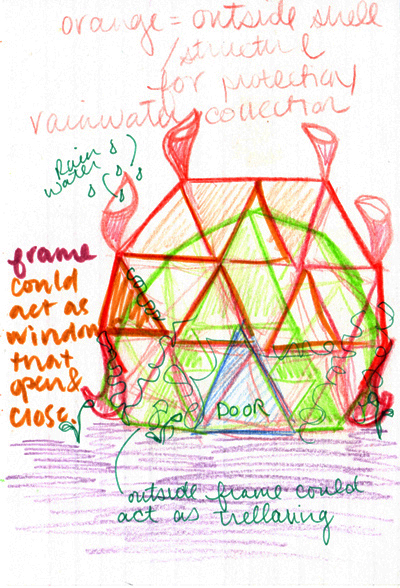 orange = outside shell
/structure
for protection/
rainwater collection
Rain
water
frame
could
act as
window
that
open &
close.
cover
DOOR
outside frame could
act as trellaring